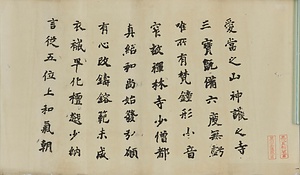 愛當之山神護之寺
三寶備六度無虧
唯所有梵鐘形小音
窄故禪林寺少僧都
真紹和尚始發弘願
有心改鑄鎔範未成
衣祴早化檀越少納
言從五位上和氣朝